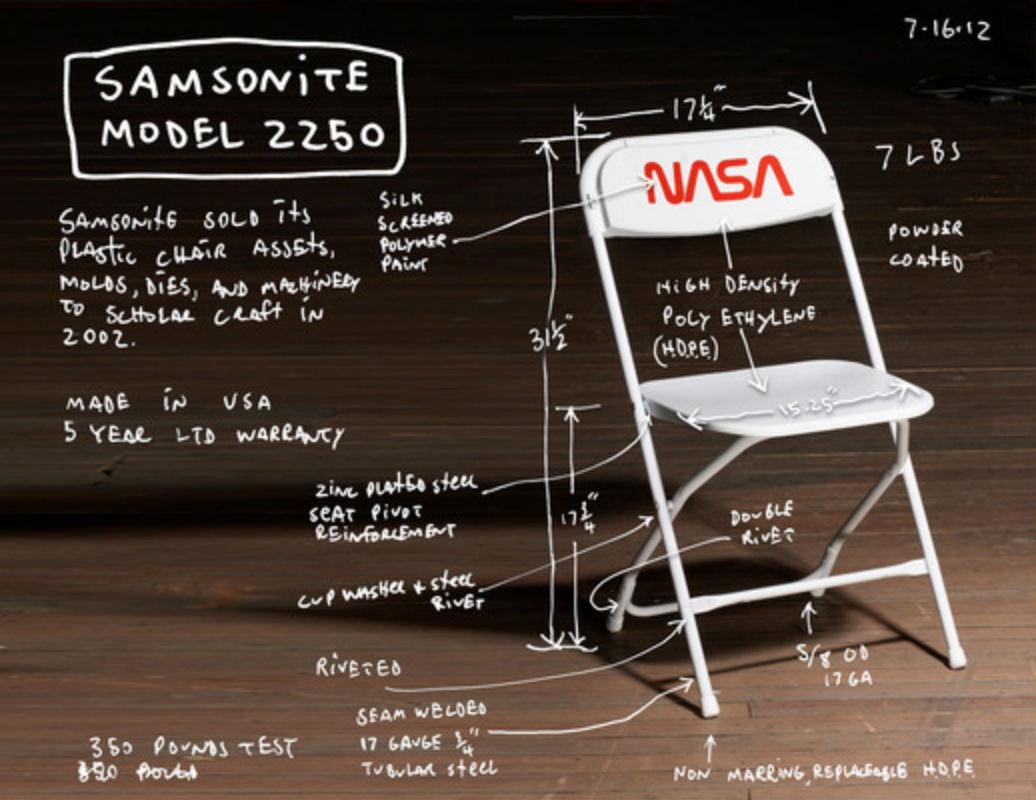 7·16·12
SAMSONITE
MODEL 2250
17 1/4"
7 LBS
POWDER
COATED
NASA
SILK
SCREENED
POLYMER
PAINT
SAMSONITE SOLD ITS
PLASTIC CHAIR ASSETS,
MOLDS, DIES, AND MACHINERY
TO SCHOLAR CRAFT IN
2002.
HIGH DENSITY
POLY ETHYLENE
(H.D.P.E)
31 1/2"
15.25"
MADE IN USA
5 YEAR LTD WARRANTY
ZINC PLATED STEEL
SEAT PIVOT
REINFORCEMENT
17 3/4"
DOUBLE
RIVET
CUP WASHER & STEEL
RIVET
RIVETED
5/8 OD
17 GA
SEAM WELDED
17 GAUGE 3/4"
TUBULAR STEEL
350 POUNDS TEST
NON MARRING, REPLACEABLE H.D.P.E.